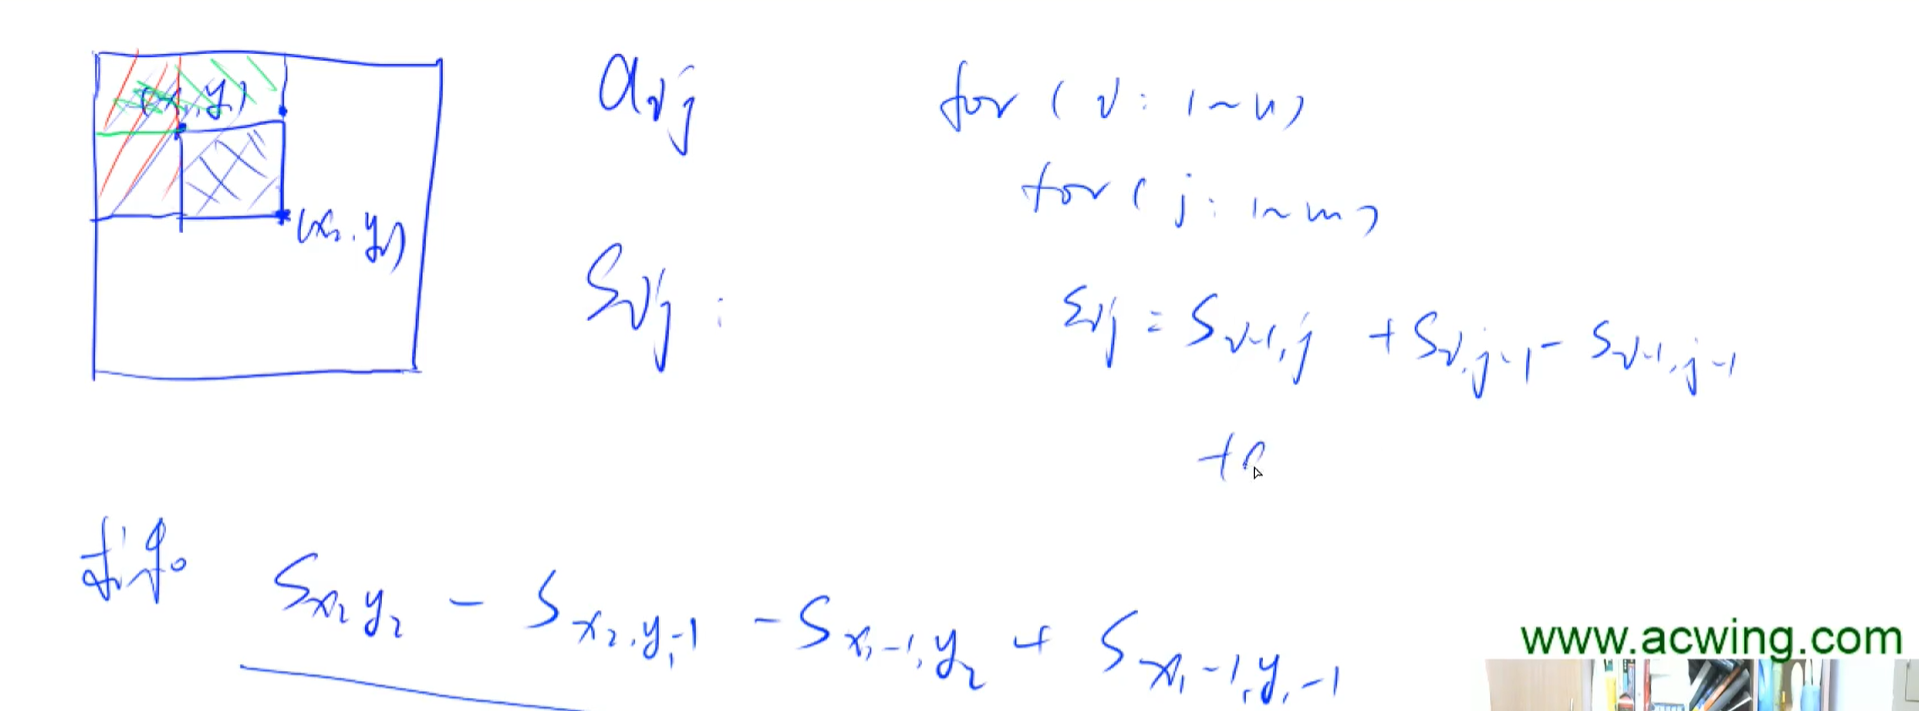 (x₁, y₁)
(x₂, y₂)
aᵢⱼ
Sᵢⱼ :
for ( i : 1~n )
for ( j : 1~m )
Sᵢⱼ = Sᵢ₋₁,ⱼ + Sᵢ,ⱼ₋₁ - Sᵢ₋₁,ⱼ₋₁
+a
求和
Sx₂y₂ - Sx₂,y₁-1 - Sx₁-1,y₂ + Sx₁-1,y₁-1
www.acwing.com